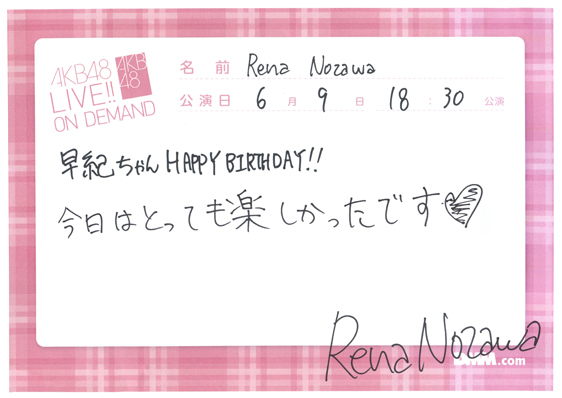 AKB48
LIVE!!
ON DEMAND
AKB
48
名前 Rena Nozawa
公演日 6月9日 18:30公演
早紀ちゃん HAPPY BIRTHDAY!!
今日はとっても楽しかったです
Rena Nozawa
.com